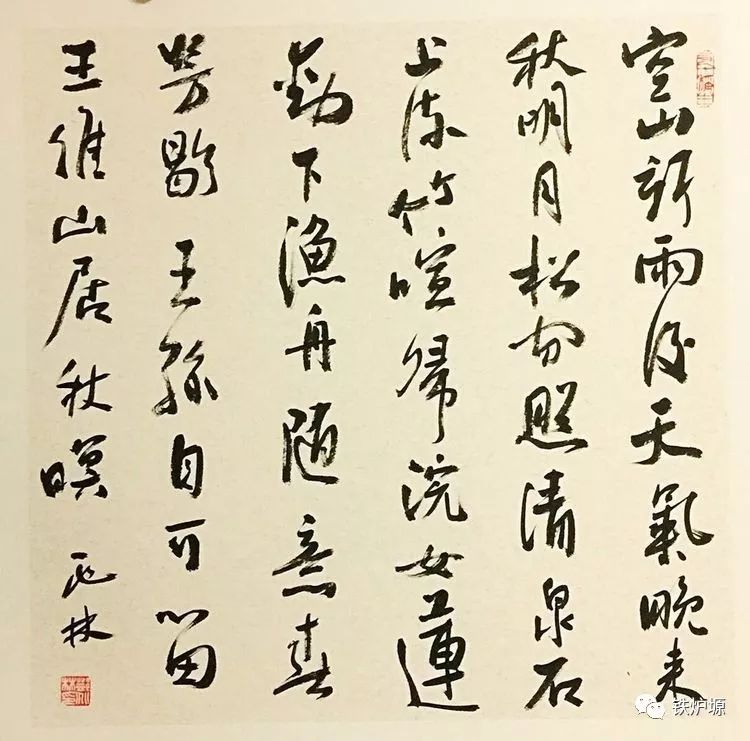 空山新雨後天氣晚来
秋明月松間照清泉石
上流竹喧歸浣女蓮
動下漁舟随意春
芳歇王孫自可留
王維山居秋暝
铁炉塬